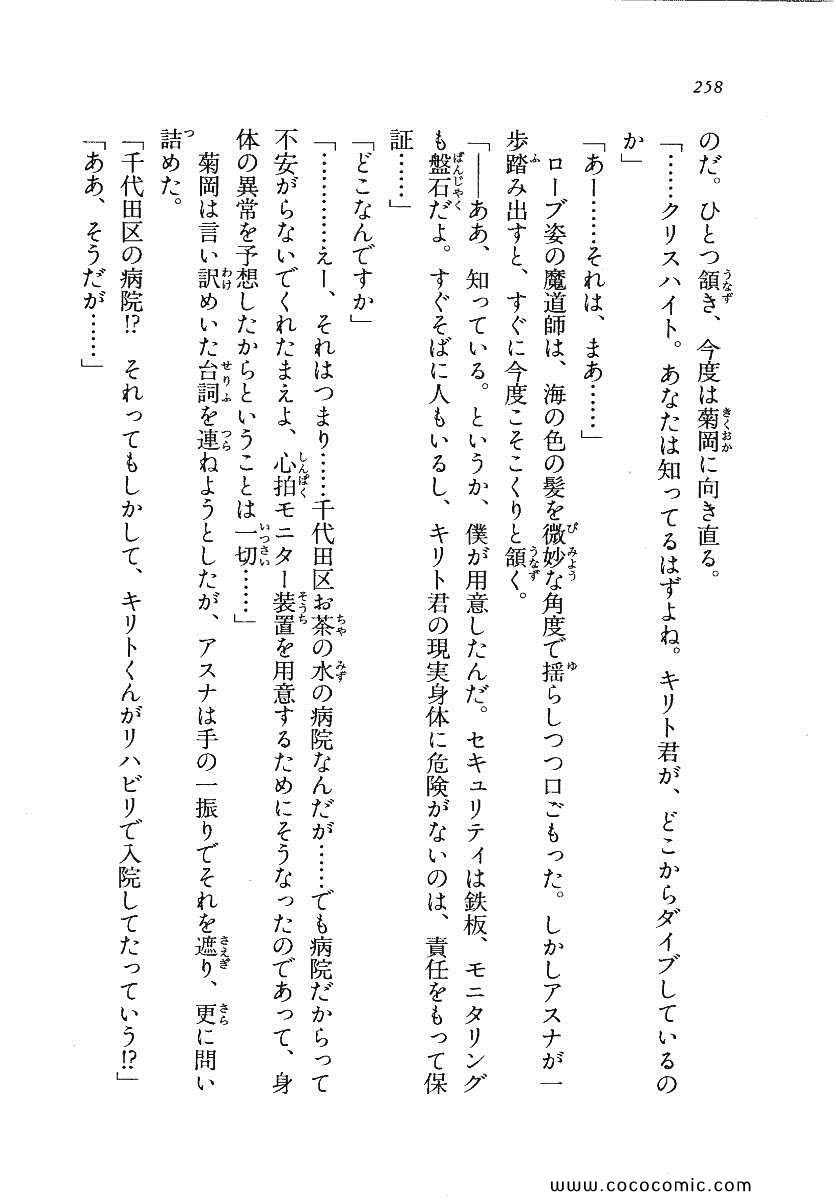 258
のだ。ひとつ頷き、今度は菊岡に向き直る。
「……クリスハイト。あなたは知ってるはずよね。キリト君が、どこからダイブしているの
か」
「あー……それは、まあ……」
ローブ姿の魔道師は、海の色の髪を微妙な角度で揺らしつつ口ごもった。しかしアスナが一
歩踏み出すと、すぐに今度こそこくりと頷く。
「――ああ、知っている。というか、僕が用意したんだ。セキュリティは鉄板、モニタリング
も盤石だよ。すぐそばに人もいるし、キリト君の現実身体に危険がないのは、責任をもって保
証……」
「どこなんですか」
「…………えー、それはつまり……千代田区お茶の水の病院なんだが……でも病院だからって
不安がらないでくれたまえよ、心拍モニター装置を用意するためにそうなったのであって、身
体の異常を予想したからということは一切……」
菊岡は言い訳めいた台詞を連ねようとしたが、アスナは手の一振りでそれを遮り、更に問い
詰めた。
「千代田区の病院!?　それってもしかして、キリトくんがリハビリで入院してたっていう!?」
「ああ、そうだが……」
www.cococomic.com